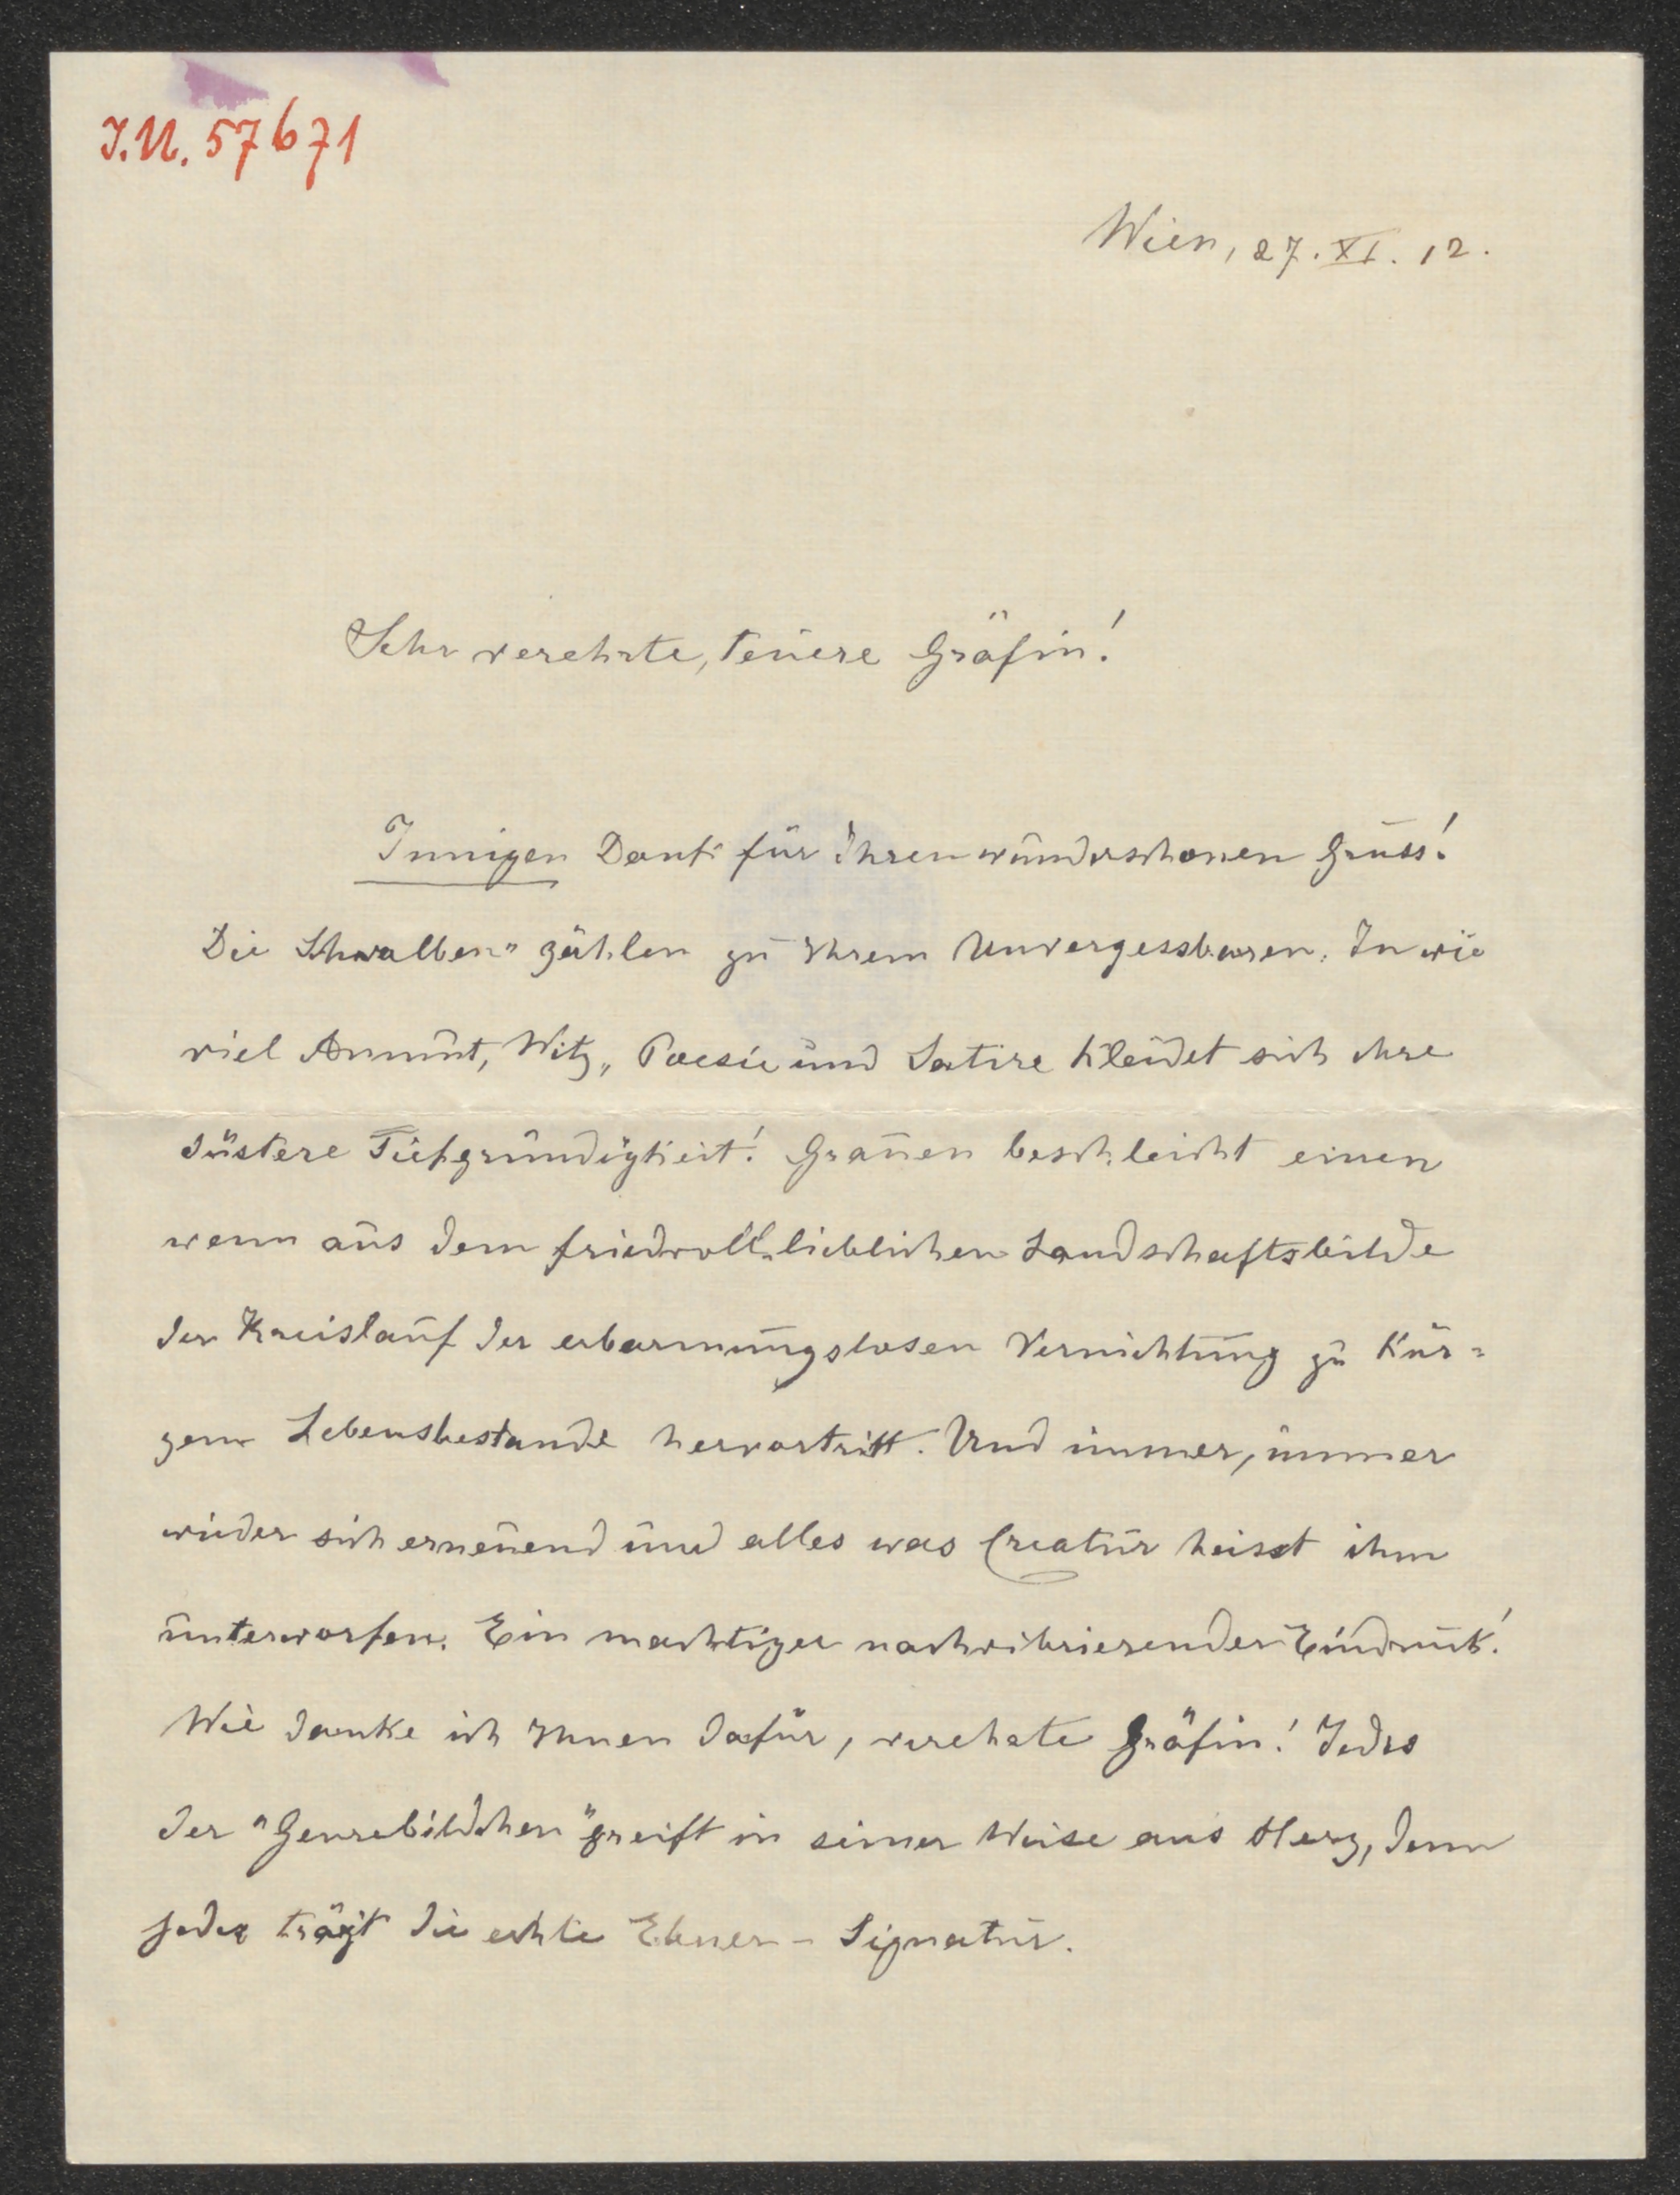 I.N. 57671
Wien, 27. XI. 12.
Sehr verehrte, teuere Gräfin!
Innigen Dank für Ihren wunderschonen Gruss!
Die Schwalben" zählen zu Ihrem Unvergessbaren. In wie
viel Anmut, Witz, Poesie und Satire kleidet sich ihre
düstere Tiefgründigkeit! Grauen beschleicht einen
wenn aus dem friedvoll-lieblichen Landschaftsbilde
der Kreislauf der erbarmungslosen Vernichtung zu Kur=
zem Lebensbestande hervortritt. Und immer, immer
wieder sich erneuend und alles was Creatur heisst ihm
unterworfen. Ein machtiger nachvibrierender Eindruck!
Wie danke ich Ihnen dafür, verehrte Gräfin! Jedes
der "Genrebildchen" greift in seiner Weise ans Herz, denn
jedes trägt die echte Ebner-Signatur.